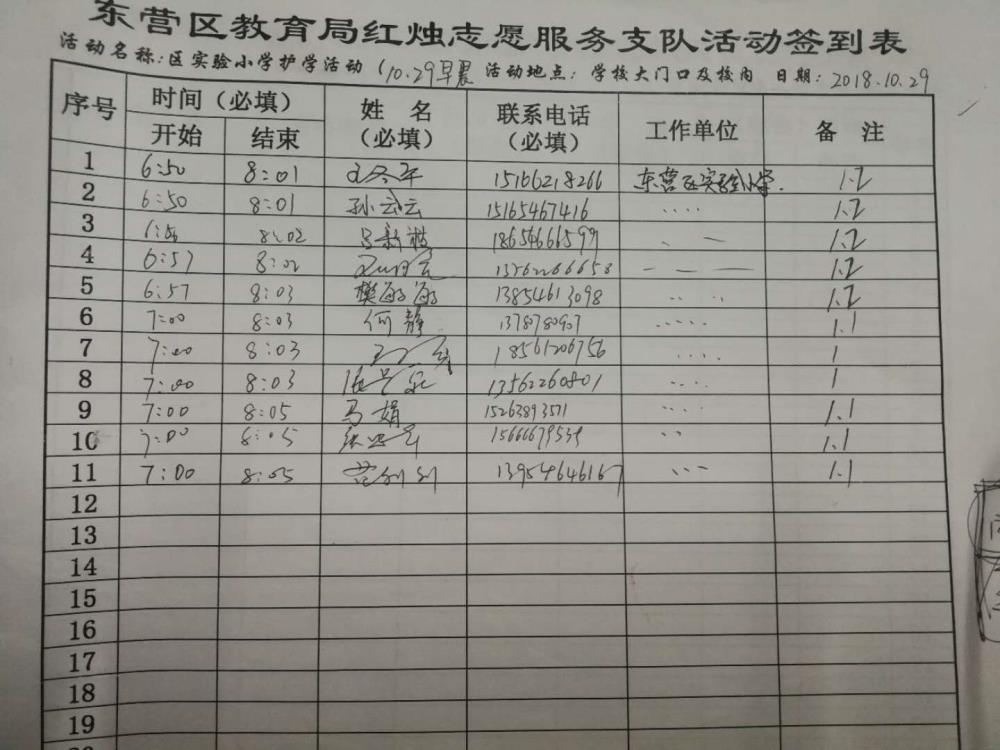 东营区教育局红烛志愿服务支队活动签到表
活动名称:区实验小学护学活动(10.29早晨 活动地点:学校大门口及校内 日期:2018.10.29
序号 时间(必填) 姓 名 (必填) 联系电话 (必填) 工作单位 备 注
开始 结束
1 6:50 8:01 15166218266 东营区实验小学. 1.2
2 6:50 8:01 孙云云 15165467416 1.2
3 8:02 18654666599 1.2
4 6:57 8:02 1.2
5 6:57 8:03 樊海海 13854613098 1.2
6 7:00 8:03 何静 1378780907 1.1
7 7:00 8:03 18561206756 1
8 7:00 8:03 13562260801 1
9 7:00 8:05 马娟 15263893571 1.1
10 7:00 8:05 15666679539 1.1
11 7:00 8:05 13954646167 1.1
12
13
14
15
16
17
18
19